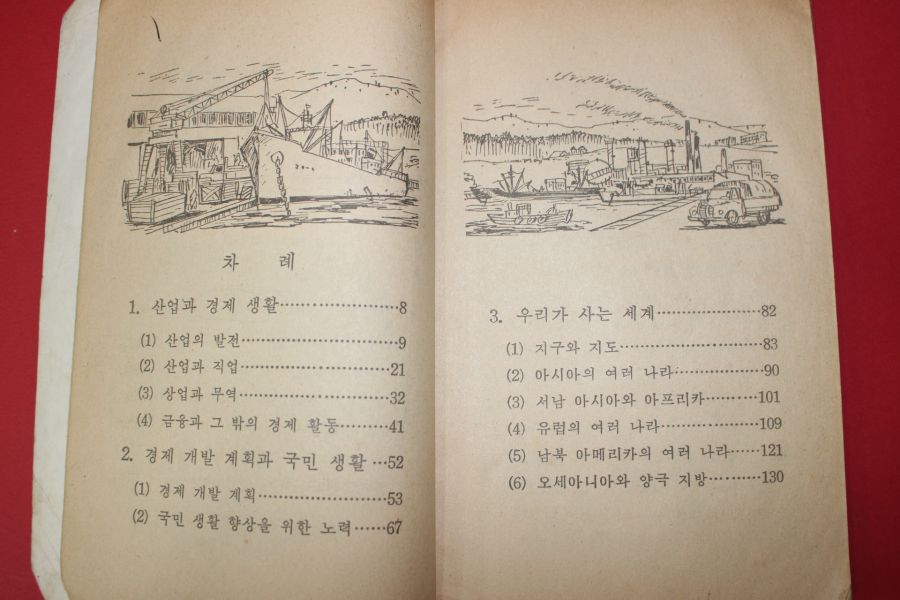 차 례
1. 산업과 경제 생활 …………………8
(1) 산업의 발전 …………………9
(2) 산업과 직업 …………………21
(3) 상업과 무역 …………………32
(4) 금융과 그 밖의 경제 활동 ………41
2. 경제 개발 계획과 국민 생활 …52
(1) 경제 개발 계획 …………………53
(2) 국민 생활 향상을 위한 노력 ……67
3. 우리가 사는 세계 …………………82
(1) 지구와 지도 …………………83
(2) 아시아의 여러 나라 ……………90
(3) 서남 아시아와 아프리카 ………101
(4) 유럽의 여러 나라 ……………109
(5) 남북 아메리카의 여러 나라 ……121
(6) 오세아니아와 양극 지방 ………130